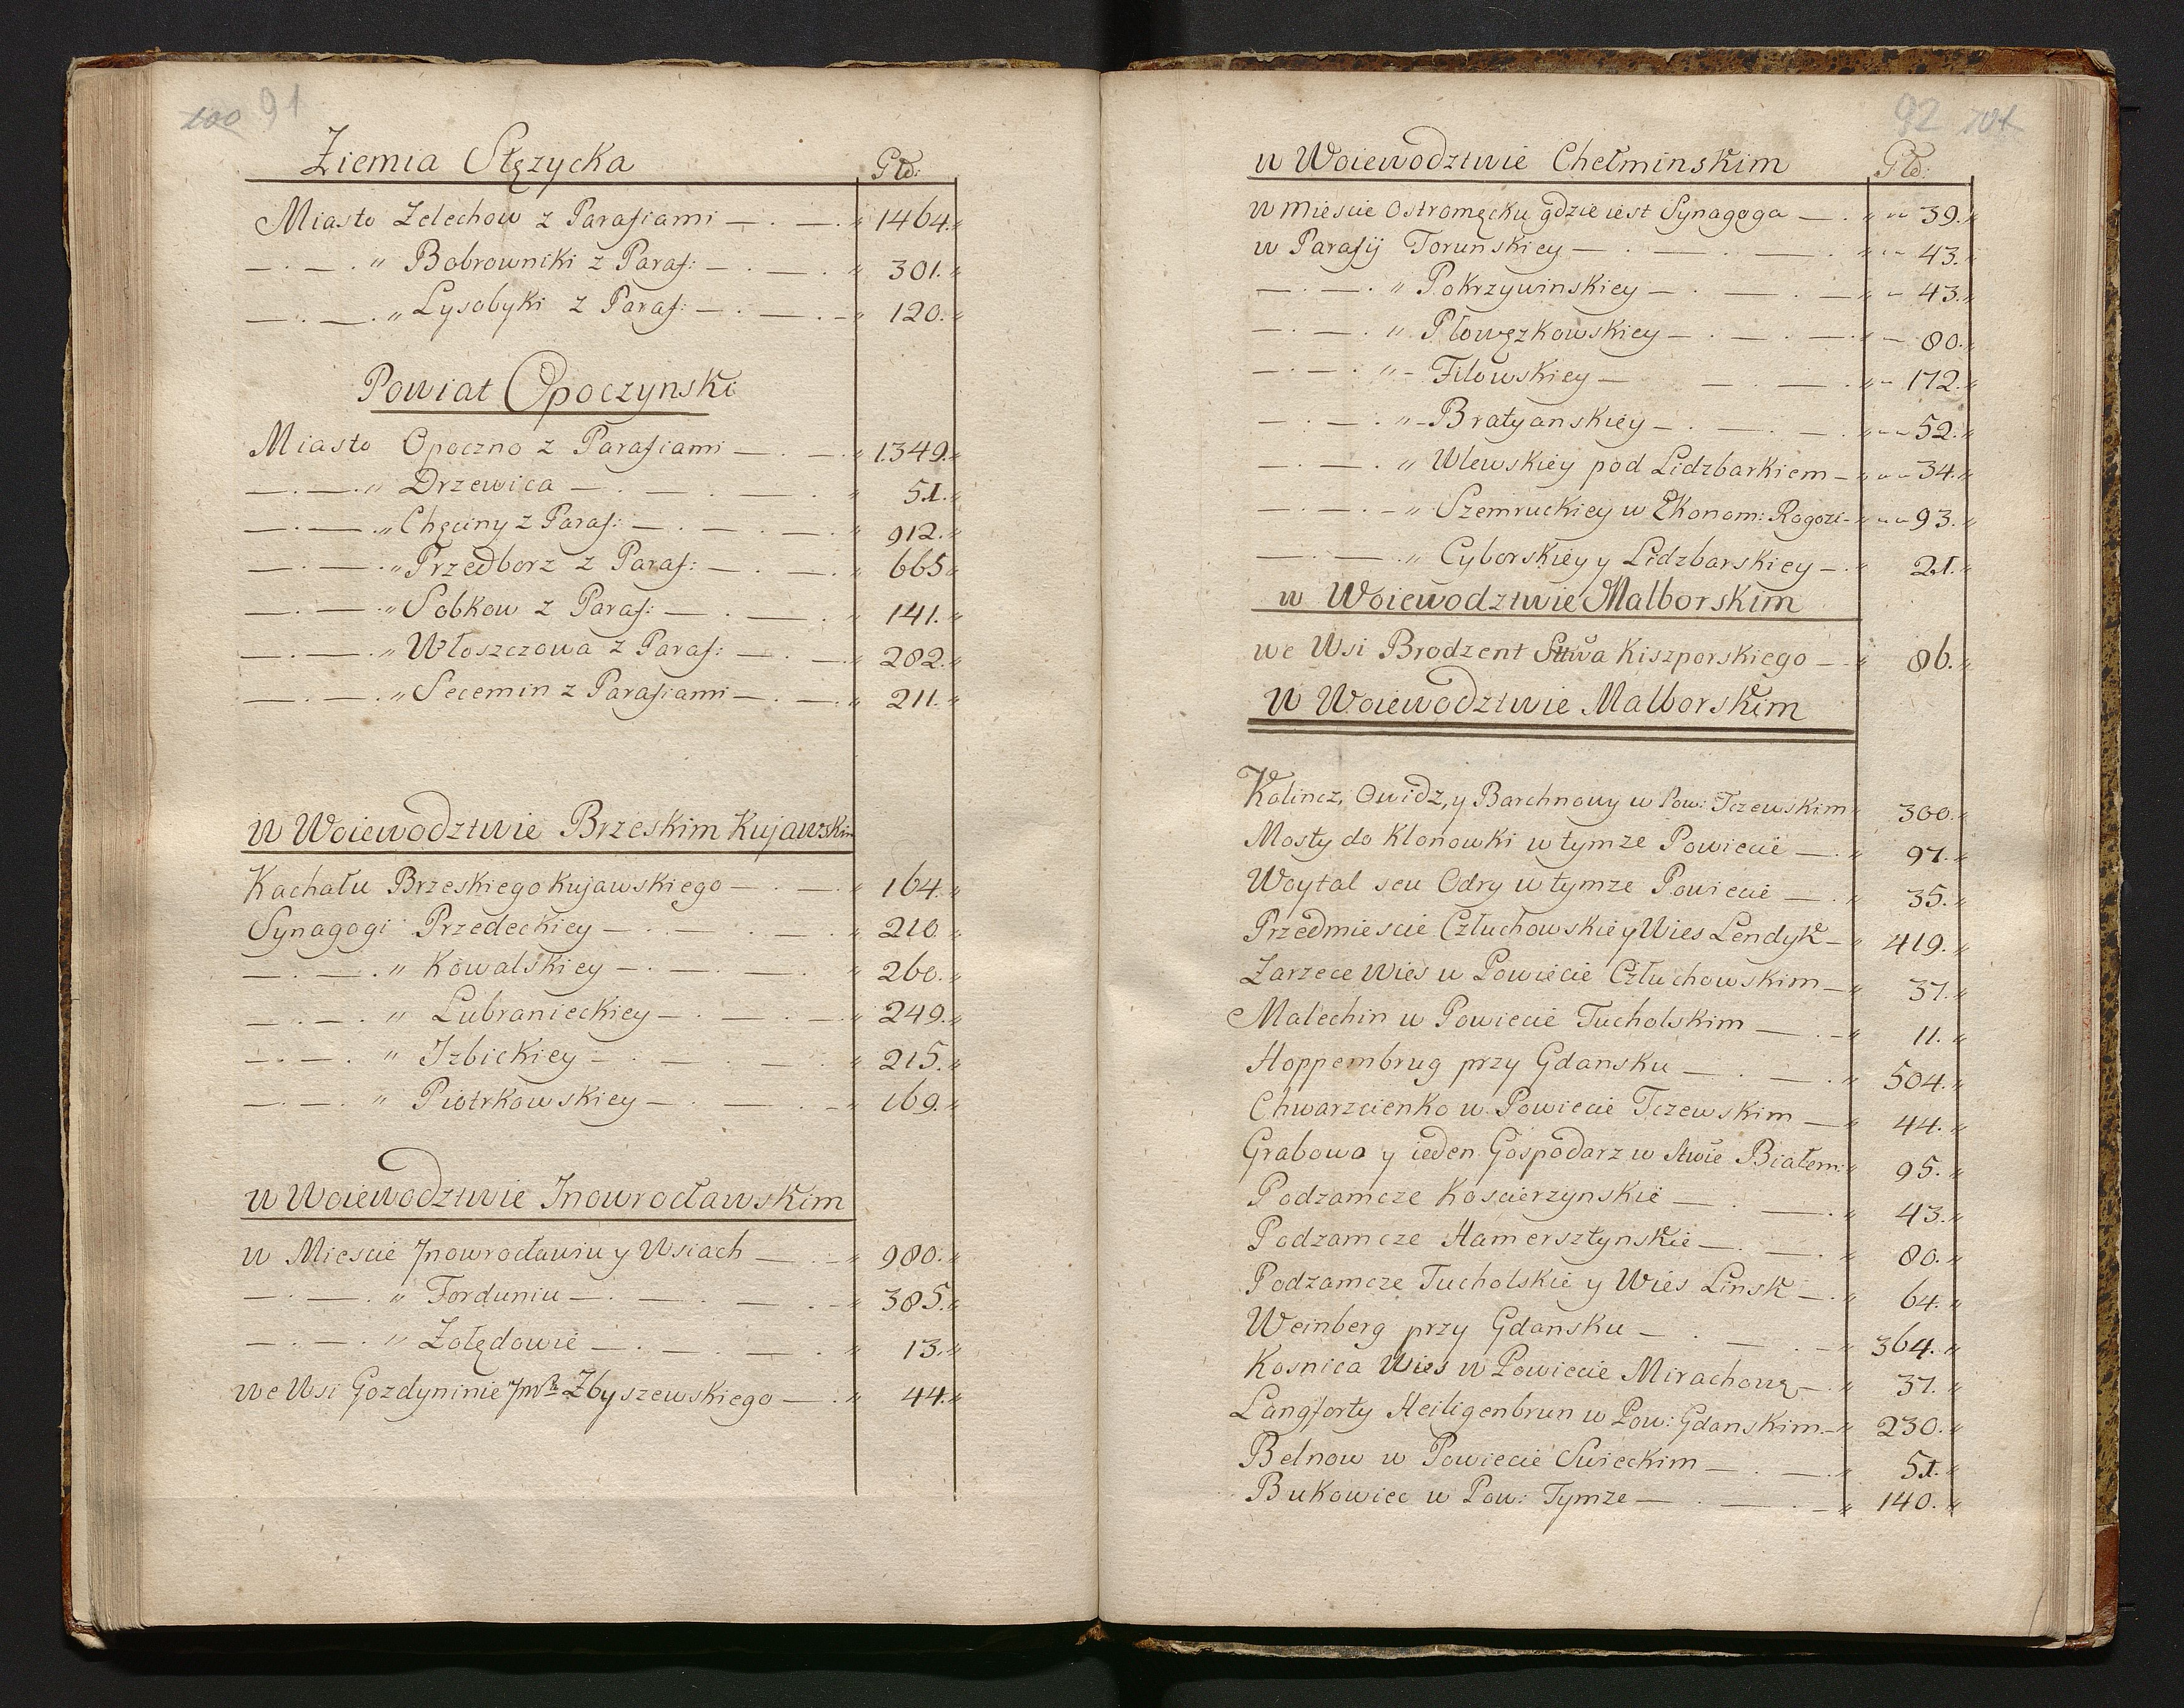 100 91
Ziemia Stęzycka Głó:
Miasto Zelechow z Parafiami — . — . " 1464. "
— . — . " Bobrowniki z Paraf: — . — . " 301. "
— . — . " Lysobyki z Paraf: — . — . — " 120. "
Powiat Opoczynski
Miasto Opoczno z Parafiami — . — . " 1349. "
— . — . " Drzewica — . — . — . " 51. "
— . — . " Chęciny z Paraf: — . — . — . " 912. "
— . — . " Przedborz z Paraf: — . — . " 665 "
— . — . " Sobkow z Paraf: — . — . " 141. "
— . — . " Włoszczowa z Paraf: — . — . " 282. "
— . — . " Secemin z Parafiami — . — . " 211. "
w Woiewodztwie Brzeskim Kujawskim
Kachału Brzeskiego Kujawskiego — . — . " 164. "
Synagogi Przedeckiey — . — . — . " 210 "
— . — . " Kowalskiey — . — . — . " 260. "
— . — . " Lubranieckiey — . — . — . " 249. "
— . — . " Izbickiey — . — . — . " 215. "
— . — . " Piotrkowskiey — . — . — " 169. "
w Woiewodztwie Inowrocławskim
w Miescie Jnowrocławiu y Wsiach — . — " 980. "
— . — . " Forduniu — . — . — . — " 385. "
— . — . " Zołędowie — . — . — . " 13. "
we Wsi Gozdyninie Jmb Zbyszewskiego — . " 44. "
92 101
w Woiewodztwie Chełminskim Głó:
w Miescie Ostromęcku gdzie iest Synagoga — . " " 39. "
w Parafij Torunskiey — . — . — . " " 43. "
— . — . " Pokrzywinskiey — . — . — " " 43. "
— . — . " Płowęzkowskiey — . — . — " — 80. "
— . — . " — Filowskiey — . — . — . " — 172. "
— . — . " — Bratyanskiey — . — . " — 52. "
— . — . " Wlewskiey pod Lidzbarkiem — " " 34. "
— . — . — " Szemruckiey w Ekonom: Rogozi — " " 93. "
— . — . " Cyborskiey y Lidzbarskiey — . " 21. "
w Woiewodztwie Malborskim
we Wsi Brodzent Sttwa Kiszporskiego — . " 86. "
w Woiewodztwie Malborskim
Kalincz, Owidz, y Barchnowy w Pow: Tczewskim " 300. "
Mosty do Klonowki w tymze Powiecie — . " 97. "
Woytal seu Odry w tymze Powiecie — . " 35. "
Przedmiescie Człuchowskie y Wies Lendyk — " 419. "
Zarzece Wies w Powiecie Człuchowskim — " 37. "
Malechin w Powiecie Tucholskim — . — " 11. "
Hoppembrug przy Gdansku — . — . " 504. "
Chwarzcienko w Powiecie Tczewskim — " 44. "
Grabowo y ieden Gospodarz w Stwie Białem: " 95. "
Podzamcze Koscierzynskie — . — . " 43. "
Podzamcze Hamersztynskie — . — . " 80. "
Podzamcze Tucholskie y Wies Linsk — . " 64. "
Weinberg przy Gdansku — . — . — " 364. "
Kosnica Wies w Powiecie Mirachowę — . " 37. "
Langforty Heiligenbrun w Pow: Gdanskim — " 230. "
Belnow w Powiecie Swieckim — . — . " 51. "
Bukowiec w Pow: Tymze — . — . — " 140. "